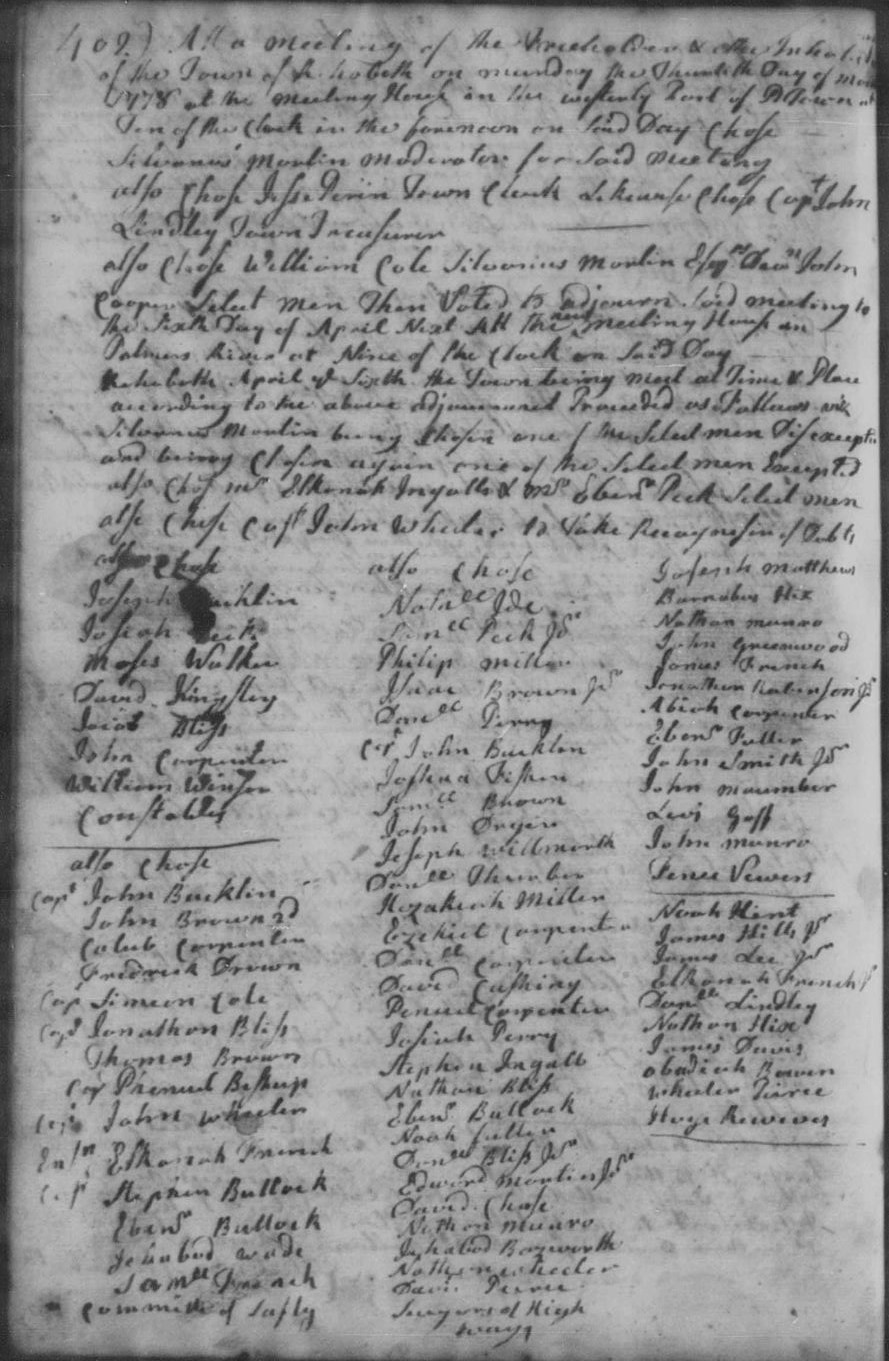 409) Att a meeting of the Freeholders & other Inhabit
of the Town of Rehoboth on munday the Thurtieth Day of Mar
1778 at the meeting House in the westerly Part of sd Town at
Ten of the Clock in the forenoon on Said Day Chose
Silvanus Martin moderator for Said meeting
also Chose Jesse Perin Town Clerk Likewise Chose Capt John
Lindley Town Treasurer
also Chose William Cole Silvanius Martin Esqr Deacn John
Cooper Select men Then Voted to adjourn Said meeting to
the Sixth Day of April Next Att the new meeting House in
Palmers River at Nine of the Clock on Said Day
Rehoboth April ye Sixth the Town being meet at Time & Place
according to the above adjournment Proceeded as Follows viz
Silvanus Martin being Chosen one of the Select men Disexcepted
and being Chosen again one of the Select men Excepted
also Chose mr Elkanah Ingalls & mr Ebenr Peck Select men
also Chose Capt John Wheeler to Take Recognesin of Debts
also Chose
Joseph Bucklin
Josiah
Moses Walker
David Kingsley
Jacob Bliss
John Carpenter
William Winsor
Constables
also Chose
Capt John Bucklin
John Brown 2d
Caleb Carpenter
Fredrick Drown
Capt Simeon Cole
Capt Jonathan Bliss
Thomas Brown
Cap Phenuel Bishup
Capt John Wheeler
Ensn Elkanah French
Capt Stephen Bullock
Ebenr Bullock
Jehabod wade
Samll French
Committe of Safty
also Chose
Nathll Ide
Samll Peck Jnr
Philip Miller
Isaac Brown Jnr
Danell Perry
Cap John Bucklin
Joshua
Samll Brown
John
Joseph Willmorth
Danll Thurber
Hezakiah Miller
Ezekiel Carpenter
Danell Carpenter
David Cushing
Penuel Carpenter
Josiah Perry
Stephen Ingalls
Nathan Bliss
Ebenr Bullock
Noah fuller
Danell Bliss Jnr
Edward Martin Jnr
David Chase
Nathan Munro
Ichabod Bozworth
Nathan wheeler
David Peirce
Suryers of High
ways
Joseph Matthews
Barnabus Hix
Nathan munro
John Greenwood
James French
Jonathan Robinson Jr
Abiah Carpenter
Ebenr Fuller
John Smith Jnr
John
Levi Goff
John munro
Fence Vewers
Noah Kent
James Hills Jnr
James Lee Jnr
Elkanah French Jr
Danll Lindley
Nathan Hix
James Davis
obadiah Bowen
Wheeler Pierce
Hoge Reveves